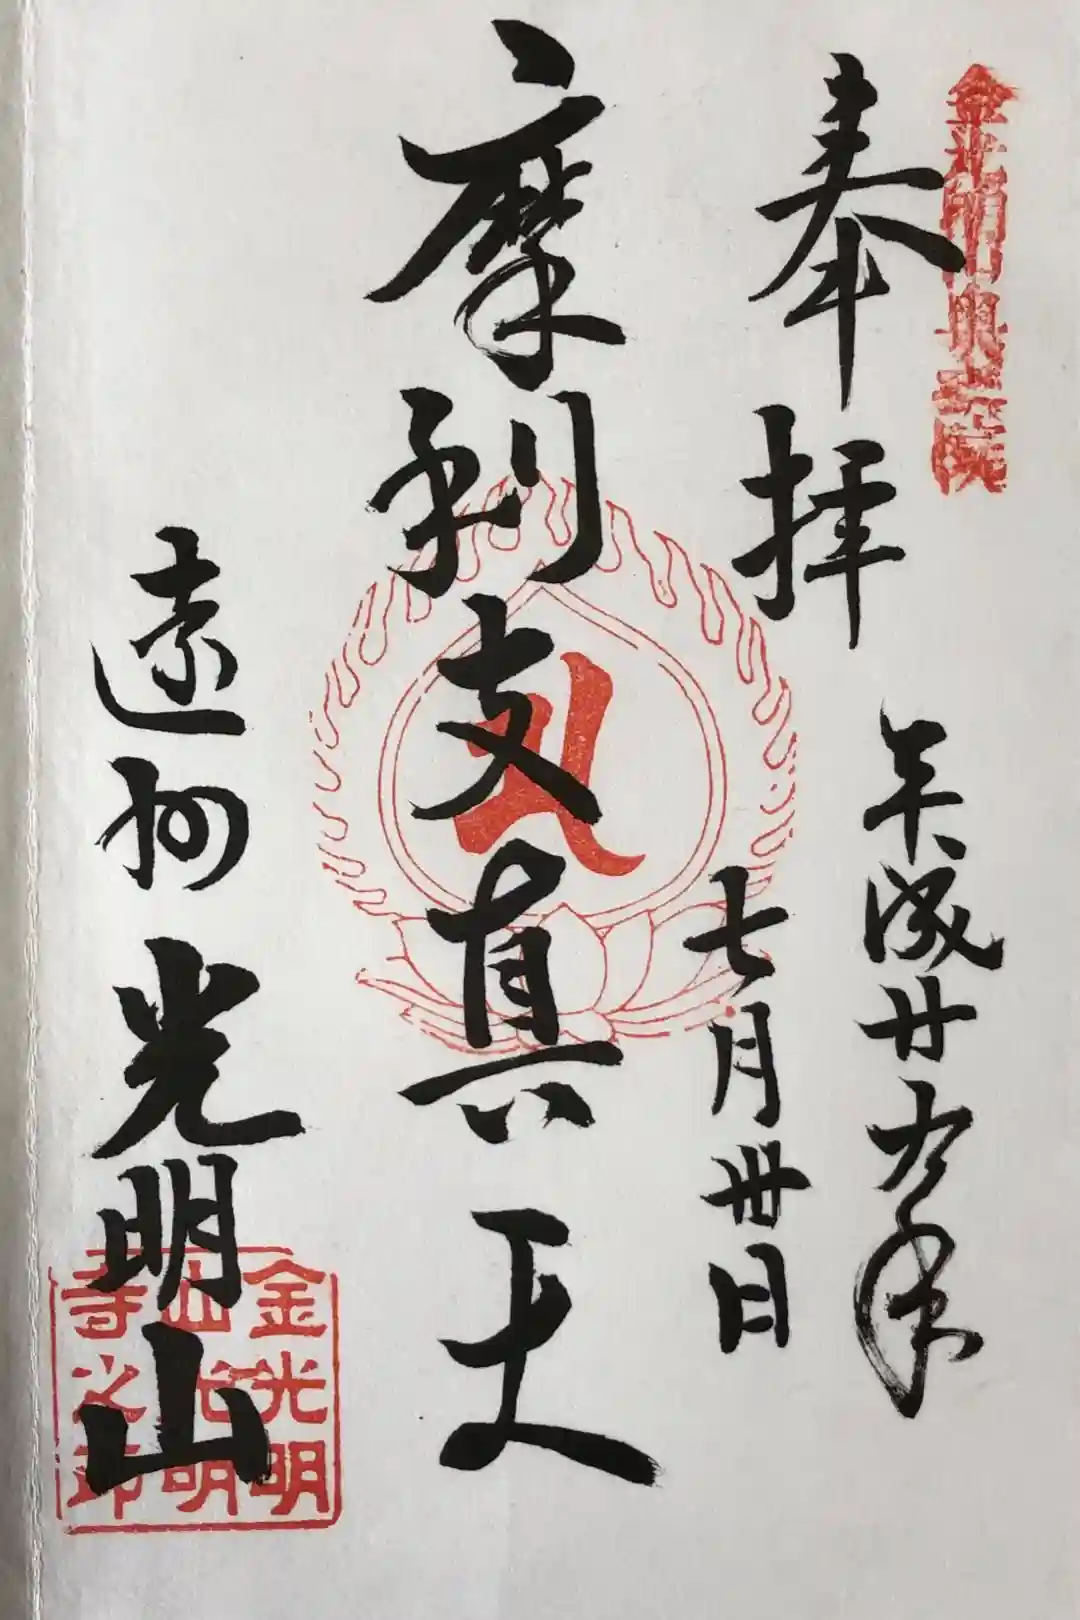 金光明山奥之院
奉拝
平成廿九年
七月卅日
摩利支真天
遠州光明山
金光明
山光明
寺之印